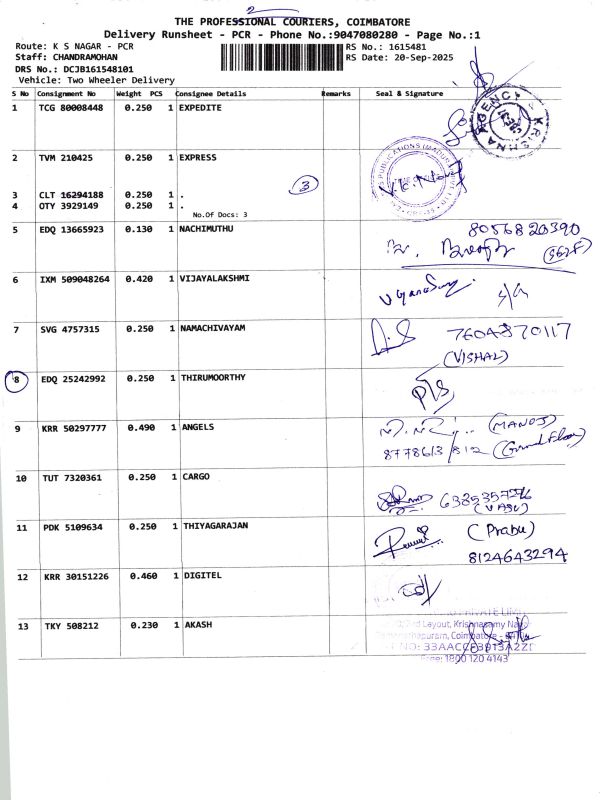 2
THE PROFESSIONAL COURIERS, COIMBATORE
Delivery Runsheet - PCR - Phone No.:9047080280 - Page No.:1
Route: K S NAGAR - PCR
RS No.: 1615481
Staff: CHANDRAMOHAN
RS Date: 20-Sep-2025
DRS No.: DCJB161548101
Vehicle: Two Wheeler Delivery
S No Consignment No Weight PCS Consignee Details Remarks Seal & Signature
1 TCG 80008448 0.250 1 EXPEDITE
AGENCY KRISHNA
2 TVM 210425 0.250 1 EXPRESS
PUBLICATIONS
3 CLT 16294188 0.250 1 .
3
4 OTY 3929149 0.250 1 .
No.Of Docs: 3
5 EDQ 13665923 0.130 1 NACHIMUTHU
8056820390
(self)
6 IXM 509048264 0.420 1 VIJAYALAKSHMI
7 SVG 4757315 0.250 1 NAMACHIVAYAM
7604870117
(VISHAL)
8 EDQ 25242992 0.250 1 THIRUMOORTHY
9 KRR 50297777 0.490 1 ANGELS
(MANOJ)
8778613/812 (Ground Floor)
10 TUT 7320361 0.250 1 CARGO
(VASU)
11 PDK 5109634 0.250 1 THIYAGARAJAN
(Prabu)
8124643294
12 KRR 30151226 0.460 1 DIGITEL
PRIVATE LIMI
13 TKY 508212 0.230 1 AKASH
Layout, Krishnasamy Na
puram, Coimbatore -
NO: 33AACCF3913A2Z
1800 120 4143